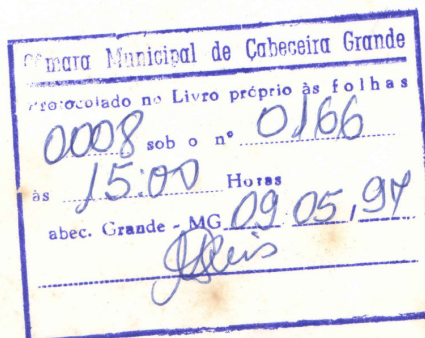 Câmara Municipal de Cabeceira Grande
Protocolado no Livro próprio às folhas
0008 sob o nº 0166
às 15:00 Horas
abec. Grande - MG 09 05, 97